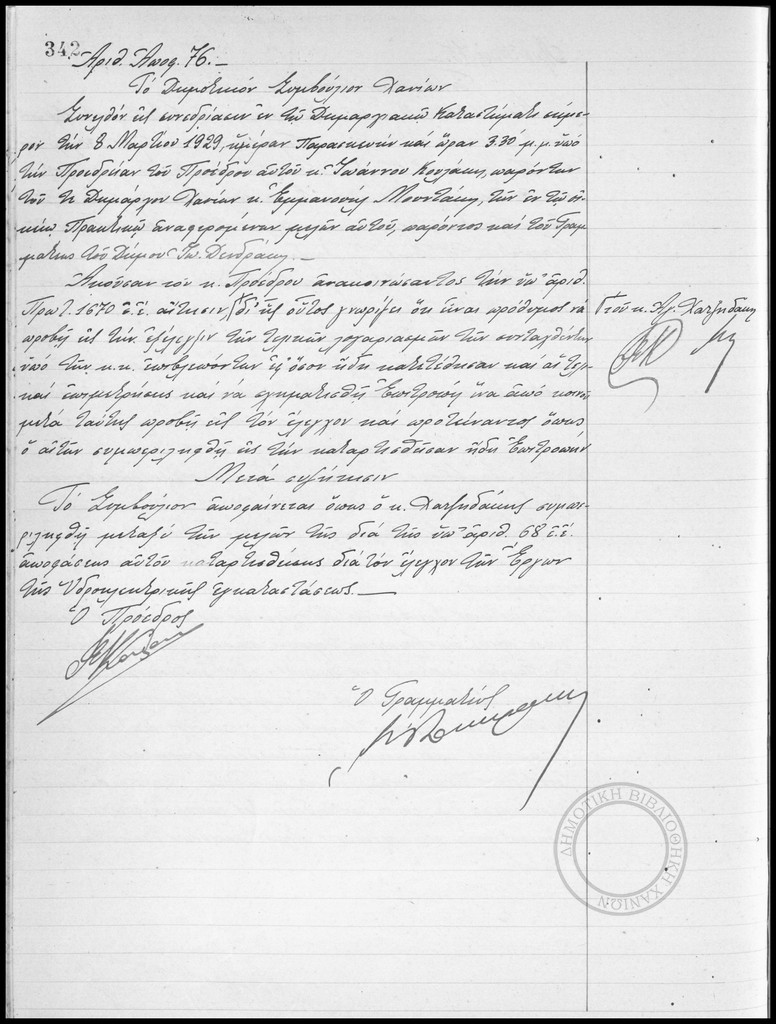 342
Ἀριθ. Ἀποφ. 76.—
Τό Δημοτικόν Συμβούλιον Χανίων
Συνελθόν εἰς συνεδρίασιν ἐν τῷ Δημαρχιακῷ Καταστήματι σήμε-
ρον τήν 8 Μαρτίου 1929, ἡμέραν Παρασκευήν καί ὥραν 3.30' μ.μ. ὑπό
τήν Προεδρείαν τοῦ Προέδρου αὐτοῦ κ. Ἰωάννου, παρόντων
τοῦ κ. Δημάρχου Χανίων κ. Ἐμμανουήλ Μουντάκη, τῶν ἐν τῷ οἰ-
κείῳ Πρακτικῷ ἀναφερομένων μελῶν αὐτοῦ, παρόντος καί τοῦ Γραμ-
ματέως τοῦ Δήμου Ἰω. Δενδράκη.—
Ἀκούσαν τοῦ κ. Προέδρου ἀνακοινώσαντος τήν ὑπ' ἀριθ.
Πρωτ. 1670 ἐ.ἔ. αἴτησιν, δι' ἧς οὗτος γνωρίζει ὅτι εἶναι πρόθυμος νά
προβῇ εἰς τήν ἐξέλεγξιν τῶν τελικῶν λογαριασμῶν τῶν συνταχθέντων
ὑπό τῶν κ.κ. ἐπιβλεπόντων ἐφ' ὅσον ἤδη κατετέθησαν καί αἱ τελι-
καί ἐπιμετρήσεις καί νά σχηματισθῇ Ἐπιτροπή ἵνα ἀπό κοινοῦ
μετά ταύτης προβῇ εἰς τόν ἔλεγχον καί προτείναντος ὅπως
ὁ αἰτῶν συμπεριληφθῇ εἰς τήν καταρτισθεῖσαν ἤδη Ἐπιτροπήν
Μετά συζήτησιν
Τό Συμβούλιον ἀποφαίνεται ὅπως ὁ κ. Χατζηδάκης συμπε-
ριληφθῇ μεταξύ τῶν μελῶν τῆς διά τῆς ὑπ' ἀριθ. 68 ἐ.ἔ.
ἀποφάσεως αὐτοῦ καταρτισθείσης διά τόν ἔλεγχον τῶν Ἔργων
τῆς Ὑδροηλεκτρικῆς ἐγκαταστάσεως.—
Ὁ Πρόεδρος
Ὁ Γραμματεύς
τοῦ κ. Χατζηδάκη
ΔΗΜΟΤΙΚΗ ΒΙΒΛΙΟΘΗΚΗ ΧΑΝΙΩΝ